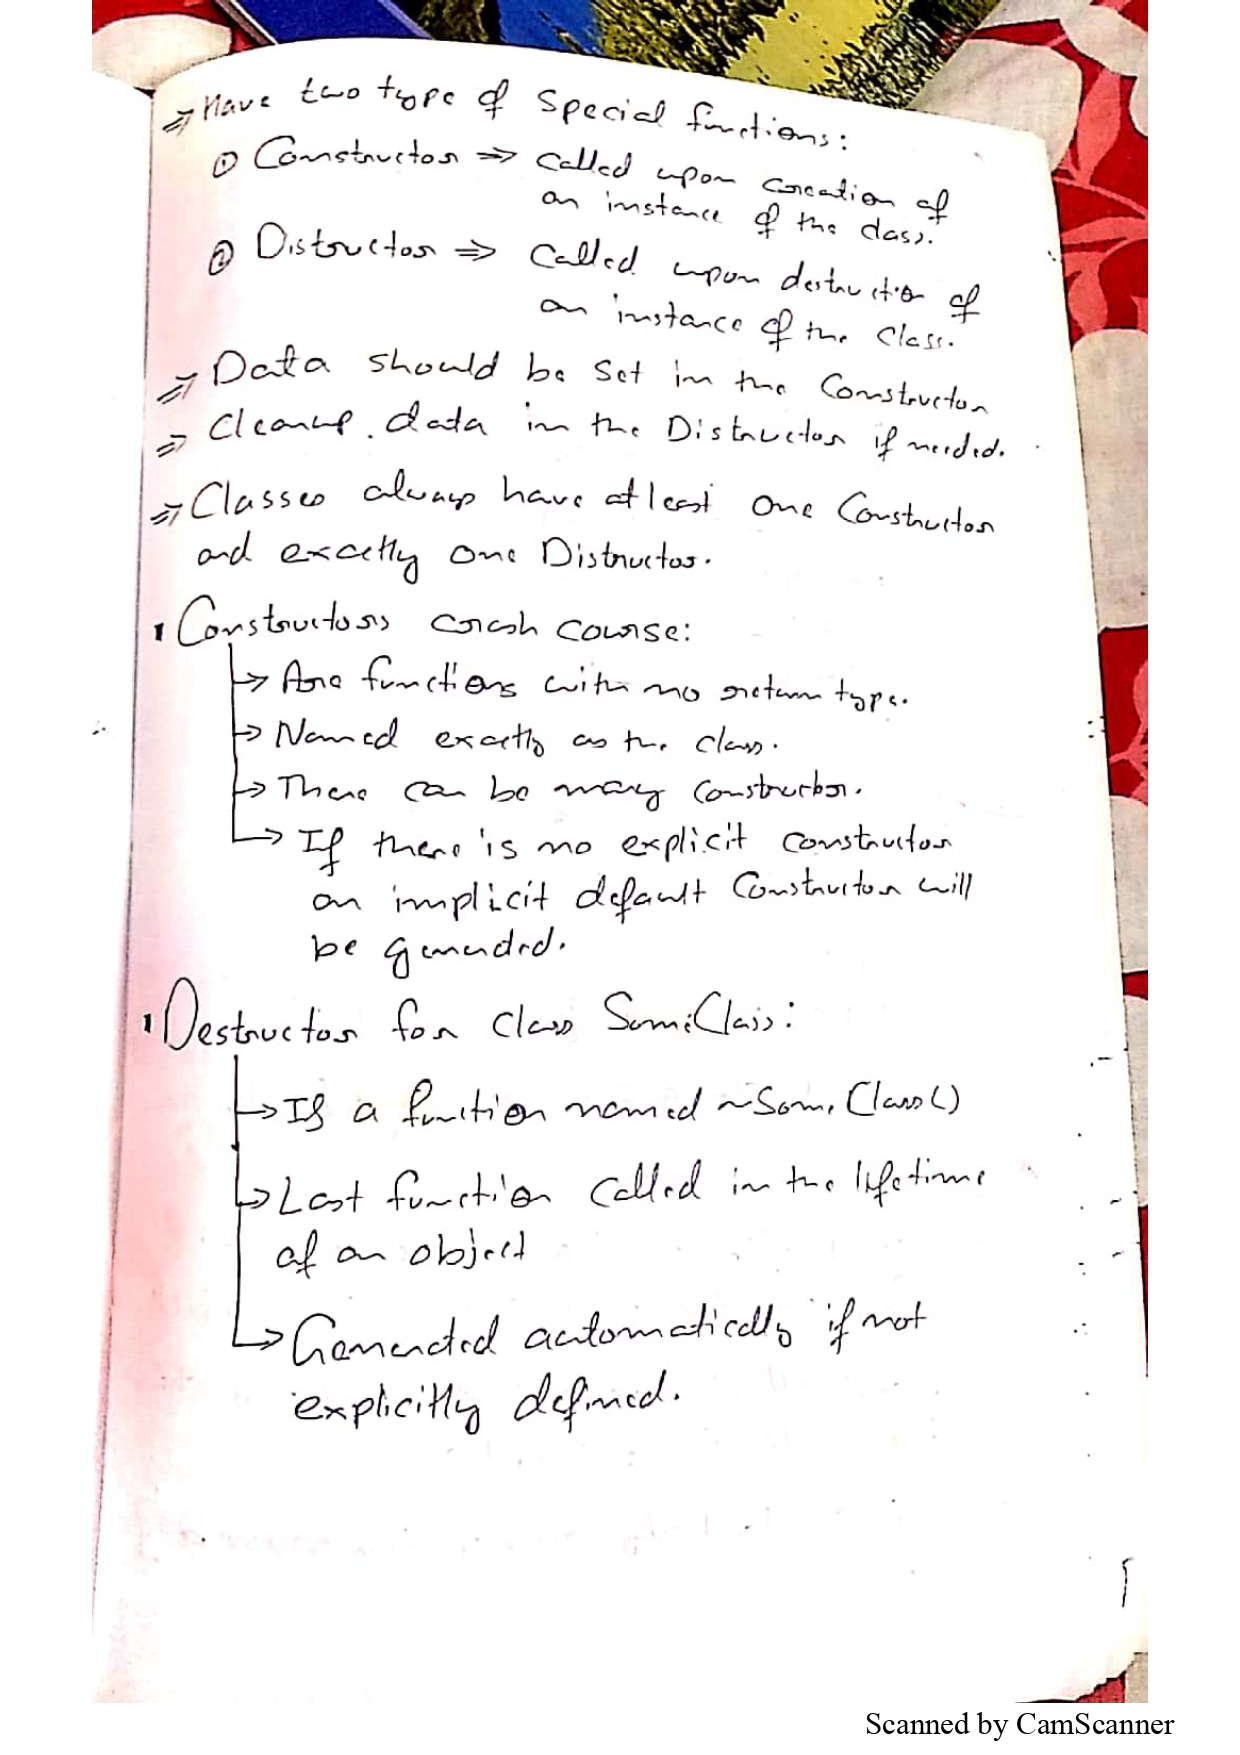 ⇒ Have two type of special functions:
① Constructor ⇒ Called upon creation of
an instance of the class.
② Distructor ⇒ Called upon destruction of
an instance of the Class.
⇒ Data should be set in the Constructor
⇒ Cleanup data in the Distructor if needed.
⇒ Classes always have atleast one Constructor
and exactly one Distructor.
Constructors crash course:
→ Are functions with no return type.
→ Named exactly as the class.
→ There can be many constructor.
→ If there is no explicit constructor
an implicit default Constructor will
be generated.
Destructor for class SomeClass:
→ Is a function named ~SomeClass()
→ Last function called in the lifetime
of an object
→ Generated automatically if not
explicitly defined.
Scanned by CamScanner